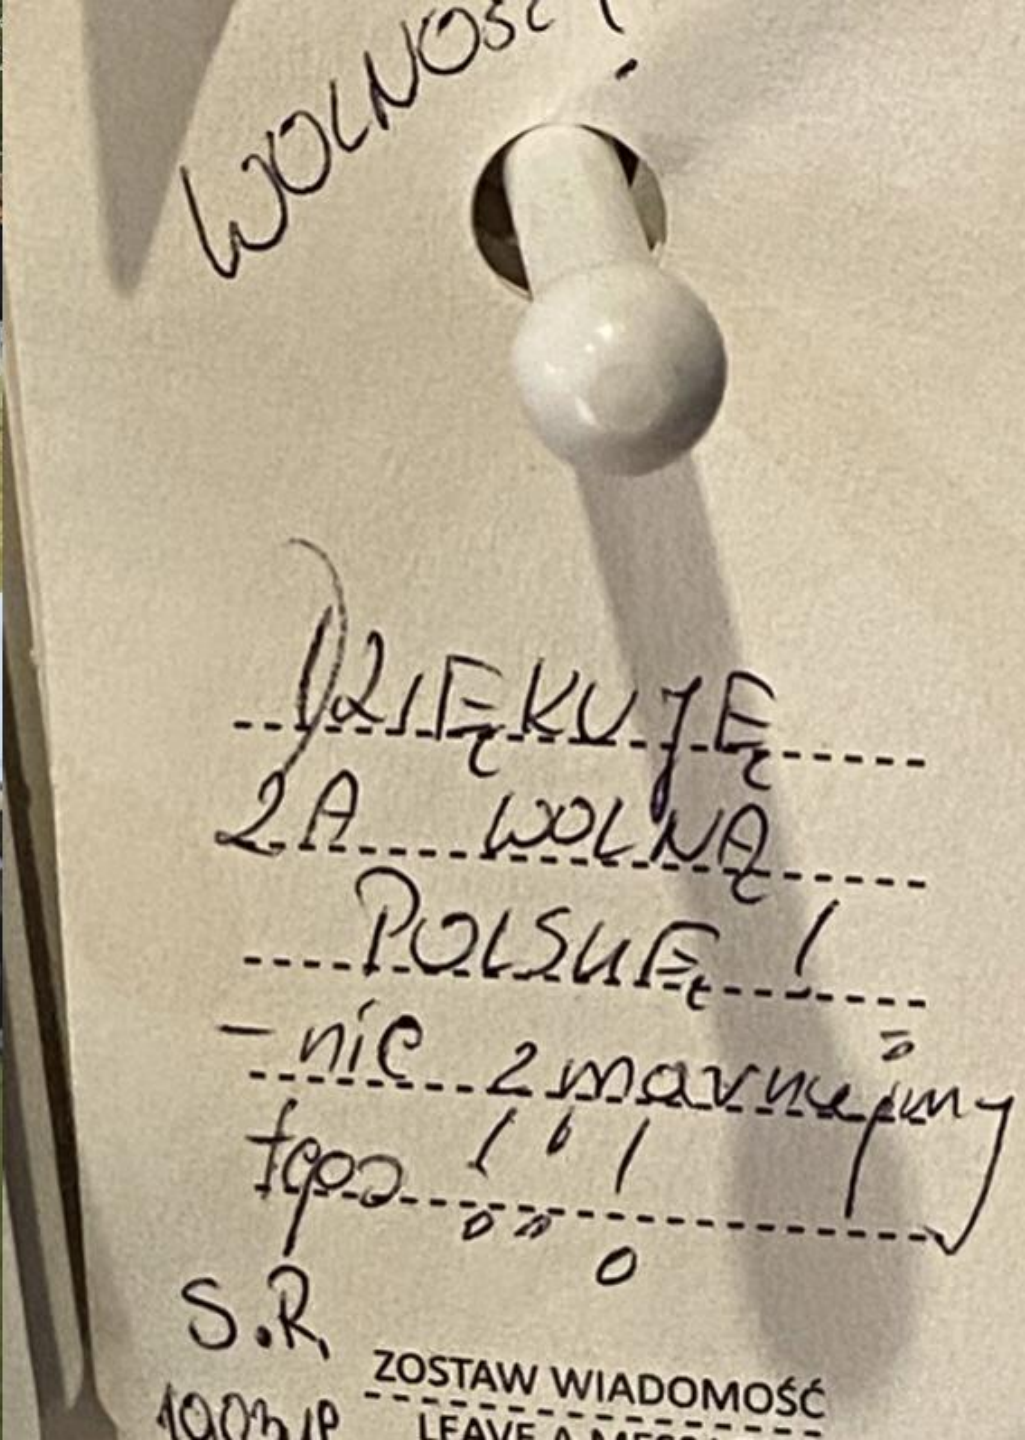 WOLNOŚĆ!
DZIĘKUJĘ
ZA WOLNĄ
POLSKĘ!
- nie zmarnujmy
tego!!!
S.R.
ZOSTAW WIADOMOŚĆ
LEAVE A